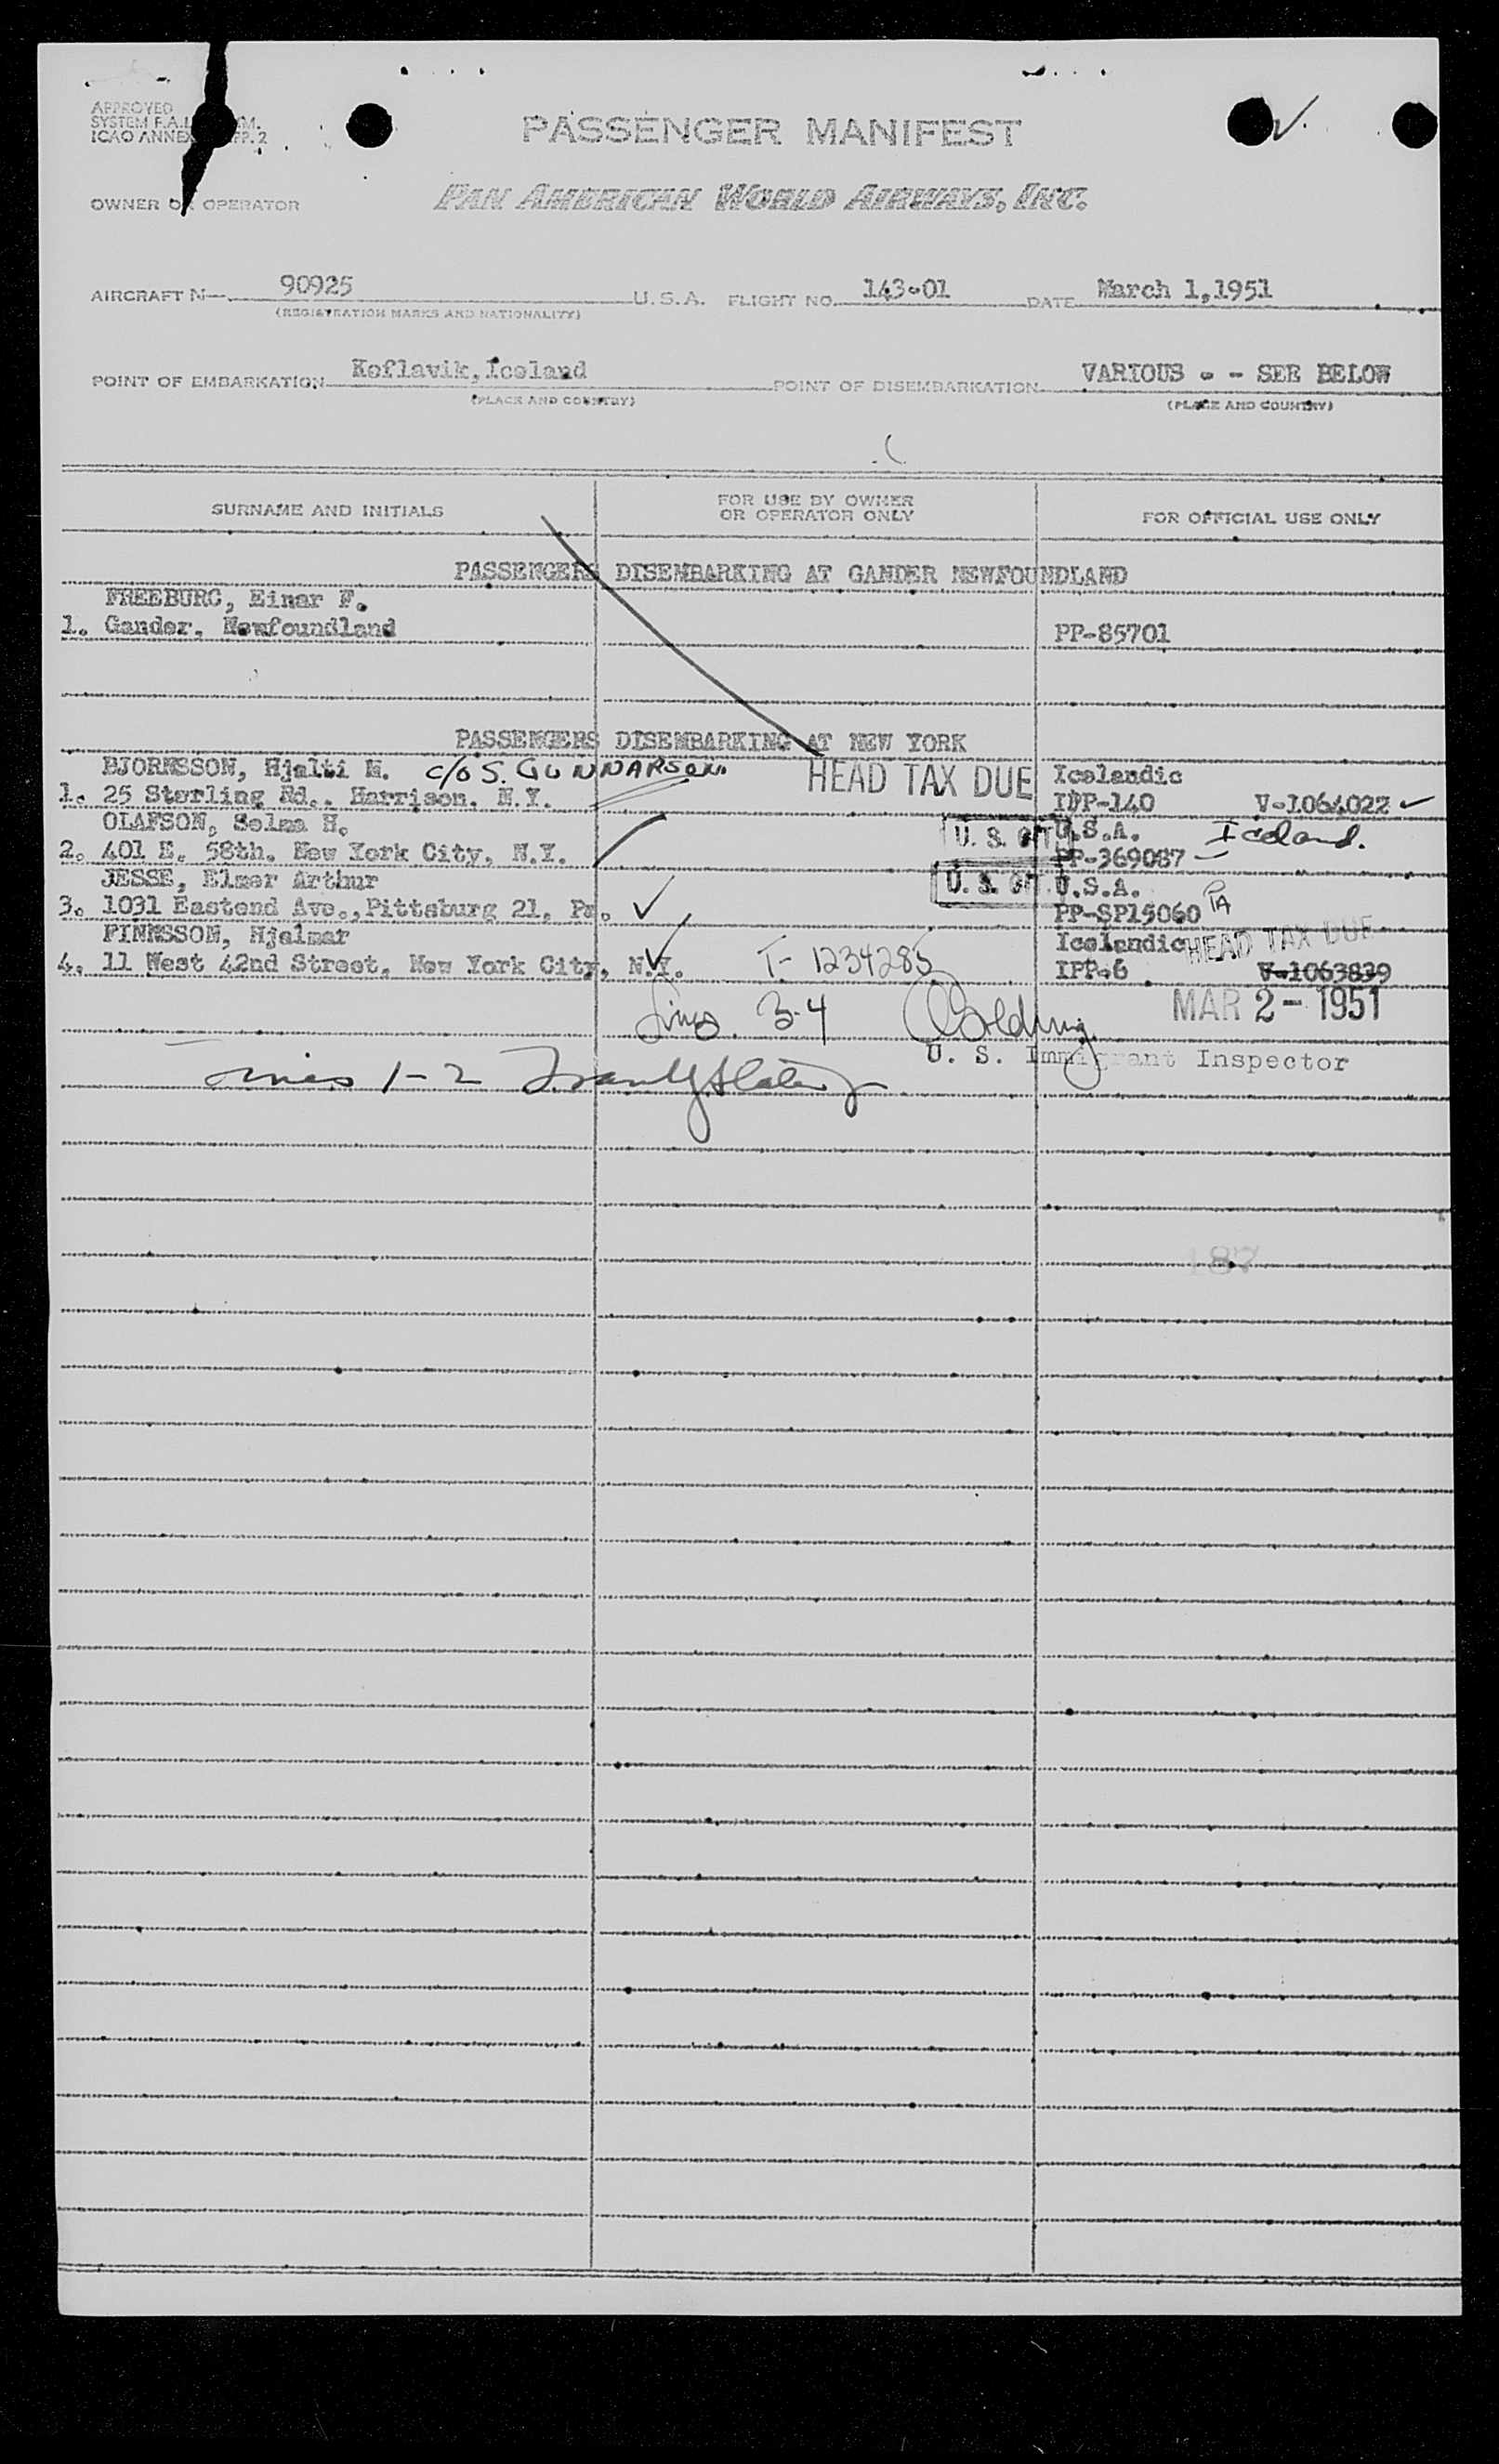 APPROVED
SYSTEM F.A.L. M.
ICAO ANNEX PP. 2
PASSENGER MANIFEST
OWNER OR OPERATOR PAN AMERICAN WORLD AIRWAYS, INC.
AIRCRAFT N— 90925 U.S.A. FLIGHT NO. 143-01 DATE March 1,1951
(REGISTRATION MARKS AND NATIONALITY)
POINT OF EMBARKATION Keflavik, Iceland POINT OF DISEMBARKATION VARIOUS - - SEE BELOW
(PLACE AND COUNTRY) (PLACE AND COUNTRY)
SURNAME AND INITIALS FOR USE BY OWNER OR OPERATOR ONLY FOR OFFICIAL USE ONLY
PASSENGERS DISEMBARKING AT GANDER NEWFOUNDLAND
FREEBURG, Einar F.
1. Gander, Newfoundland PP-85701
PASSENGERS DISEMBARKING AT NEW YORK
BJORNSSON, Hjalti M. c/o S. GUNNARSON. HEAD TAX DUE Icelandic
1. 25 Sterling Rd., Harrison, N.Y. IDP-140 V-1064022
OLAFSON, Selma H. U.S. CIT U.S.A. Iceland.
2. 401 E. 58th, New York City, N.Y. PP-369087
JESSE, Elmer Arthur U.S. CIT U.S.A.
3. 1031 Eastend Ave.,Pittsburg 21, Pa. PP-SP15060 PA
FINNSSON, Hjalmar Icelandic HEAD TAX DUE
4. 11 West 42nd Street, New York City, N.Y. T-1234285 IPP-6 V-1063839
Lines 3-4 Golding MAR 2 - 1951
U. S. Immigrant Inspector
Lines 1-2
187